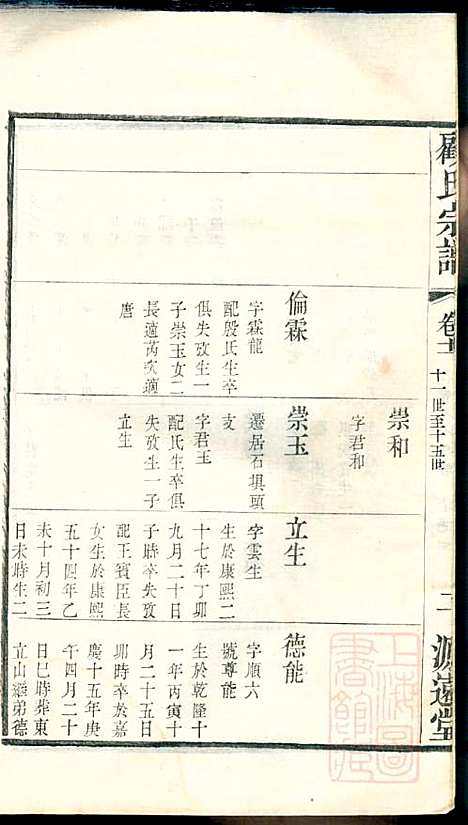 顧氏宗譜
卷十一
十一世至十五世
二
源遠堂
上海圖書館藏
崇和
字君和
倫霖
字霖龍
配殷氏生卒
俱失攷生一
子崇玉女二
長適芮次適
唐
崇玉
遷居石埧頭
支
字君玉
配氏生卒俱
失攷生一子
立生
立生
字雲生
生於康熙二
十七年丁卯
九月二十日
子時卒失攷
配王賓臣長
女生於康熙
五十四年乙
未十月初三
日未時生二
德能
字順六
號尊能
生於乾隆十
一年丙寅十
月二十五日
卯時卒於嘉
慶十五年庚
午四月二十
日巳時葬東
立山繼弟德